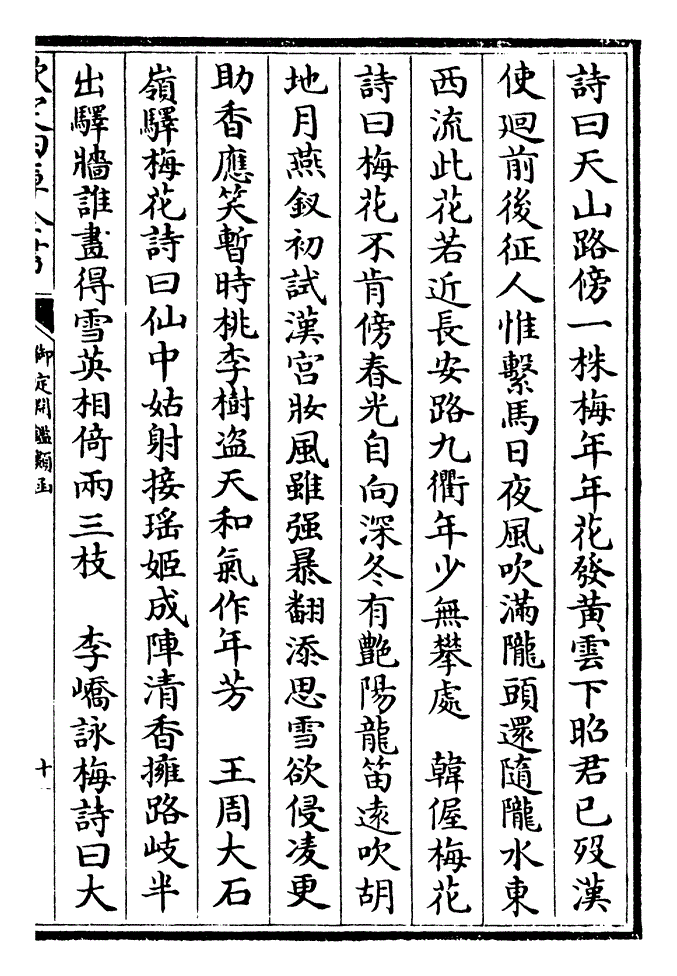 詩曰天山路傍一株梅年年花發黄雲下昭君已歿漢
使廻前後征人惟繫馬日夜風吹滿隴頭還隨隴水東
西流此花若近長安路九衢年少無攀處　韓偓梅花
詩曰梅花不肯傍春光自向深冬有艷陽龍笛逺吹胡
地月燕釵初試漢宫妝風雖强暴翻添思雪欲侵凌更
助香應笑暫時桃李樹盗天和氣作年芳　王周大石
嶺驛梅花詩曰仙中姑射接瑶姬成陣清香擁路岐半
出驛牆誰畫得雪英相倚兩三枝　李嶠詠梅詩曰大
御定淵鑑類函
十